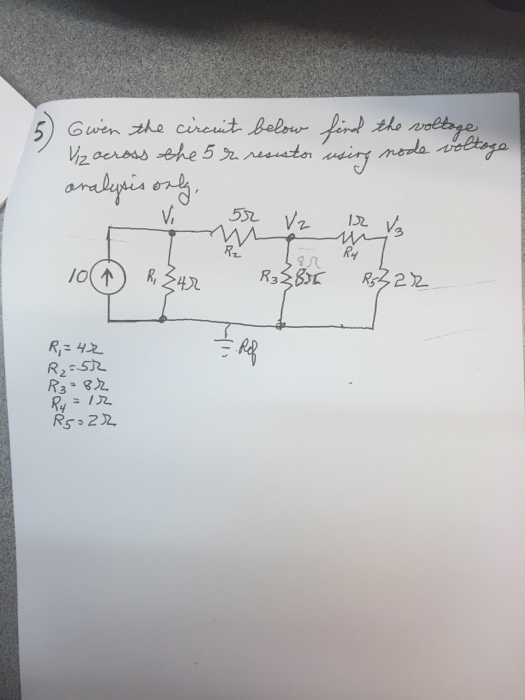 5) Given the circuit below find the voltage
V12 across the 5 Ω resistor using node voltage
analysis only.
V1 5Ω V2 1Ω V3
R2 R4
8Ω
10 ↑ R1 4Ω R3 8Ω R5 2Ω
Ref
R1 = 4Ω
R2 = 5Ω
R3 = 8Ω
R4 = 1Ω
R5 = 2Ω